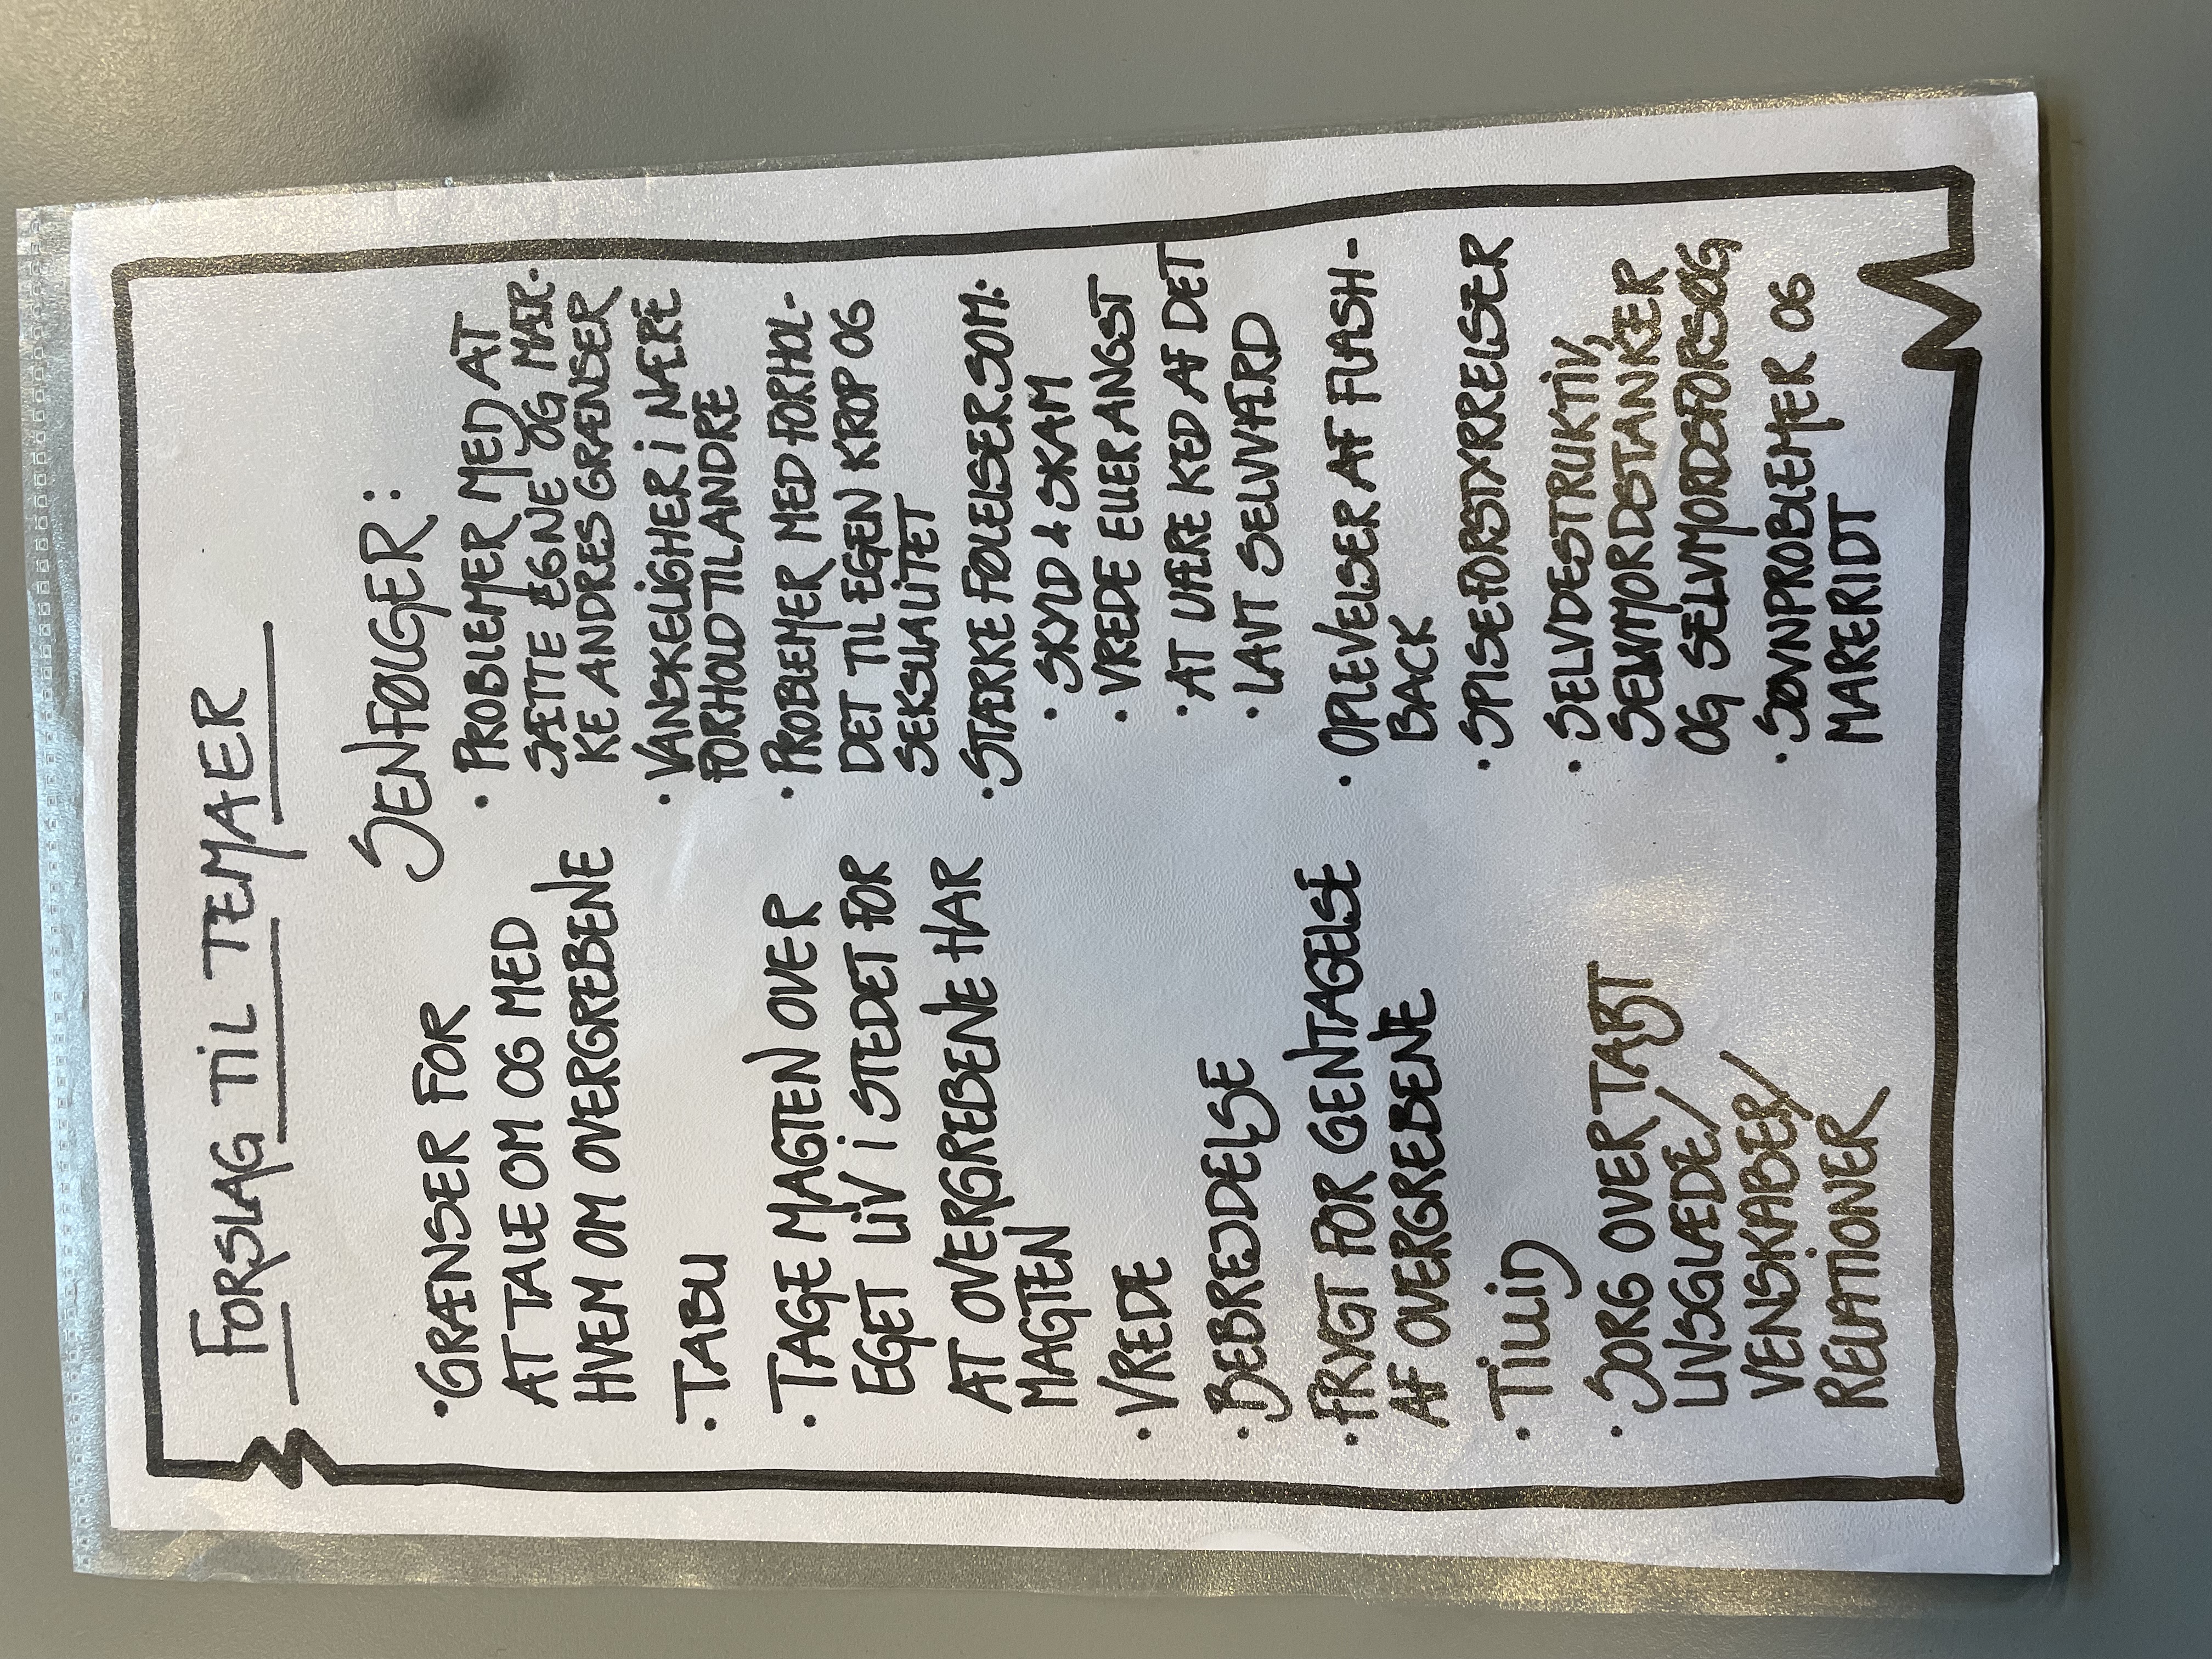 FORSLAG TIL TEMAER
• GRÆNSER FOR
AT TALE OM OG MED
HVEM OM OVERGREBENE
• TABU
• TAGE MAGTEN OVER
EGET LIV I STEDET FOR
AT OVERGREBENE HAR
MAGTEN
• VREDE
• BEBREJDELSE
• FRYGT FOR GENTAGELSE
AF OVERGREBENE
• TILLID
• SORG OVER TABT
LIVSGLÆDE/
VENSKABER/
RELATIONER
SENFØLGER:
• PROBLEMER MED AT
SÆTTE EGNE OG MÆR-
KE ANDRES GRÆNSER
• VANSKELIGHER I NÆRE
FORHOLD TIL ANDRE
• PROBLEMER MED FORHOL-
DET TIL EGEN KROP OG
SEKSUALITET
• STÆRKE FØLELSER SOM:
• SKYLD & SKAM
• VREDE ELLER ANGST
• AT VÆRE KED AF DET
• LAVT SELVVÆRD
• OPLEVELSER AF FLASH-
BACK
• SPISEFORSTYRRELSER
• SELVDESTRUKTIV,
SELVMORDSTANKER
OG SELVMORDSFORSØG
• SØVNPROBLEMER OG
MARERIDT